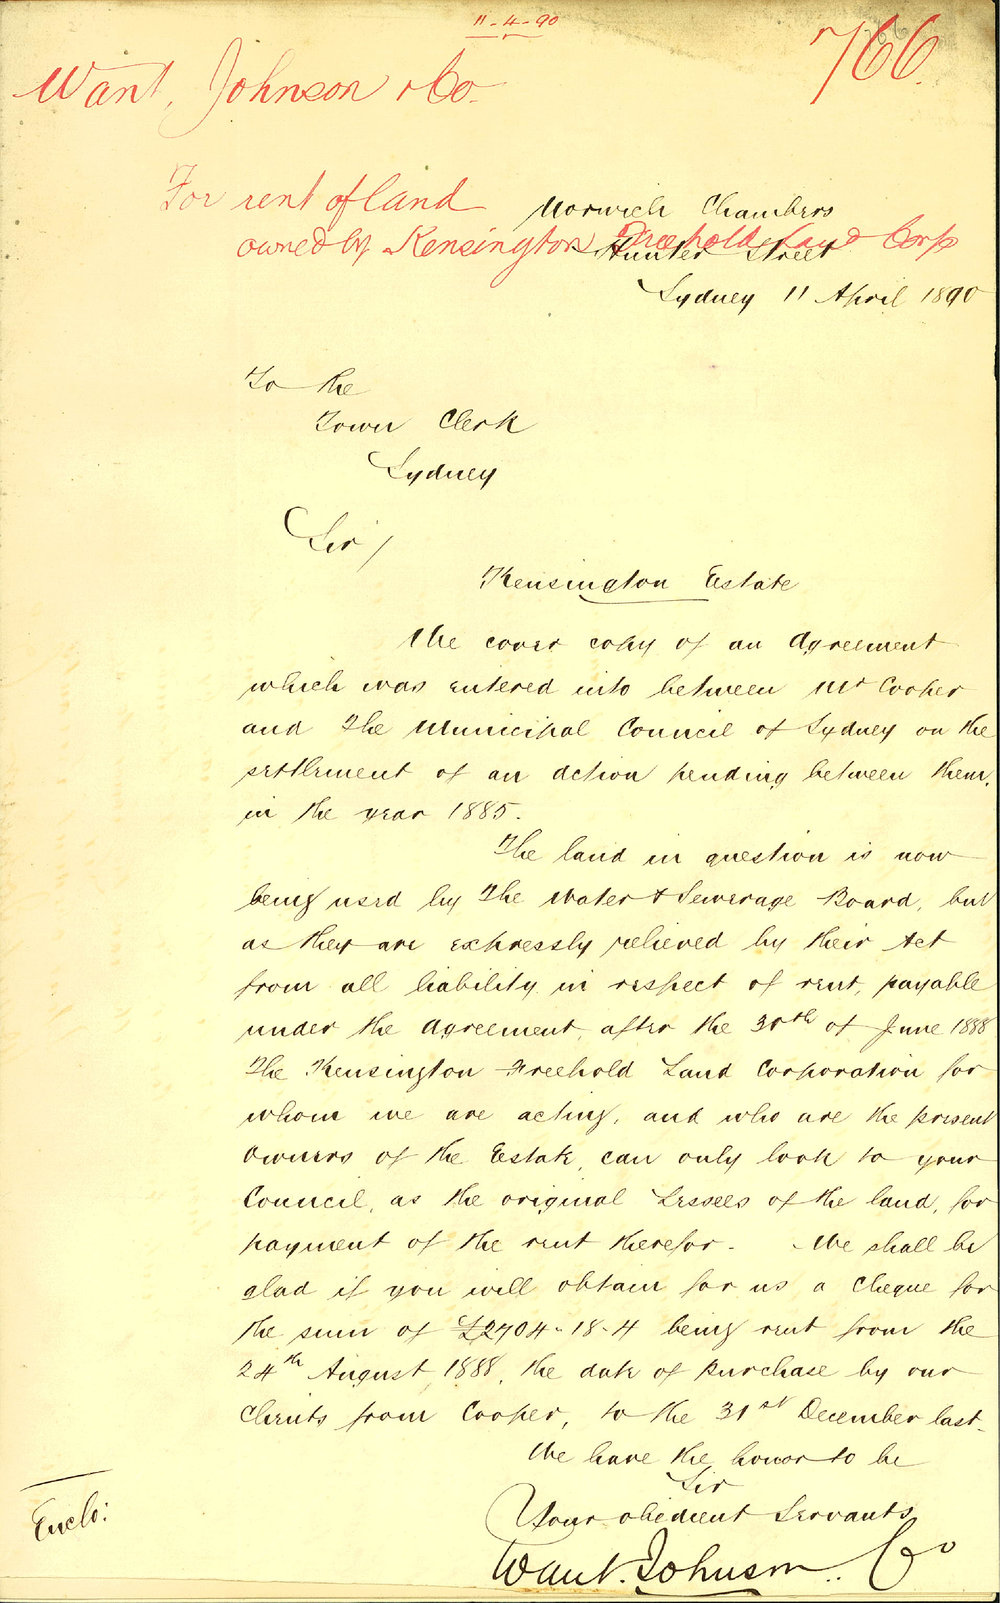 11-4-90
766
Want, Johnson & Co.
For rent of land
owned by Kensington Freehold Land Corp
Norwich Chambers
Hunter Street
Sydney 11 April 1890
To the
Town Clerk
Sydney
Sir/
Kensington Estate
We cover copy of an Agreement
which was entered into between Mr Cooper
and The Municipal Council of Sydney on the
settlement of an action pending between them,
in the year 1885.
The land in question is now
being used by The Water & Sewerage Board, but
as they are expressly relieved by their Act
from all liability in respect of rent, payable
under the Agreement, after the 30th of June 1888
The Kensington Freehold Land Corporation for
whom we are acting, and who are the present
owners of the Estate, can only look to your
Council, as the original Lessees of the land, for
payment of the rent therefor. We shall be
glad if you will obtain for us a cheque for
the sum of £2704-18-4 being rent from the
24th August, 1888, the date of purchase by our
Clients from Cooper, to the 31st December last.
We have the honor to be
Sir
Your obedient Servants
Want. Johnson. Co
Enclo: